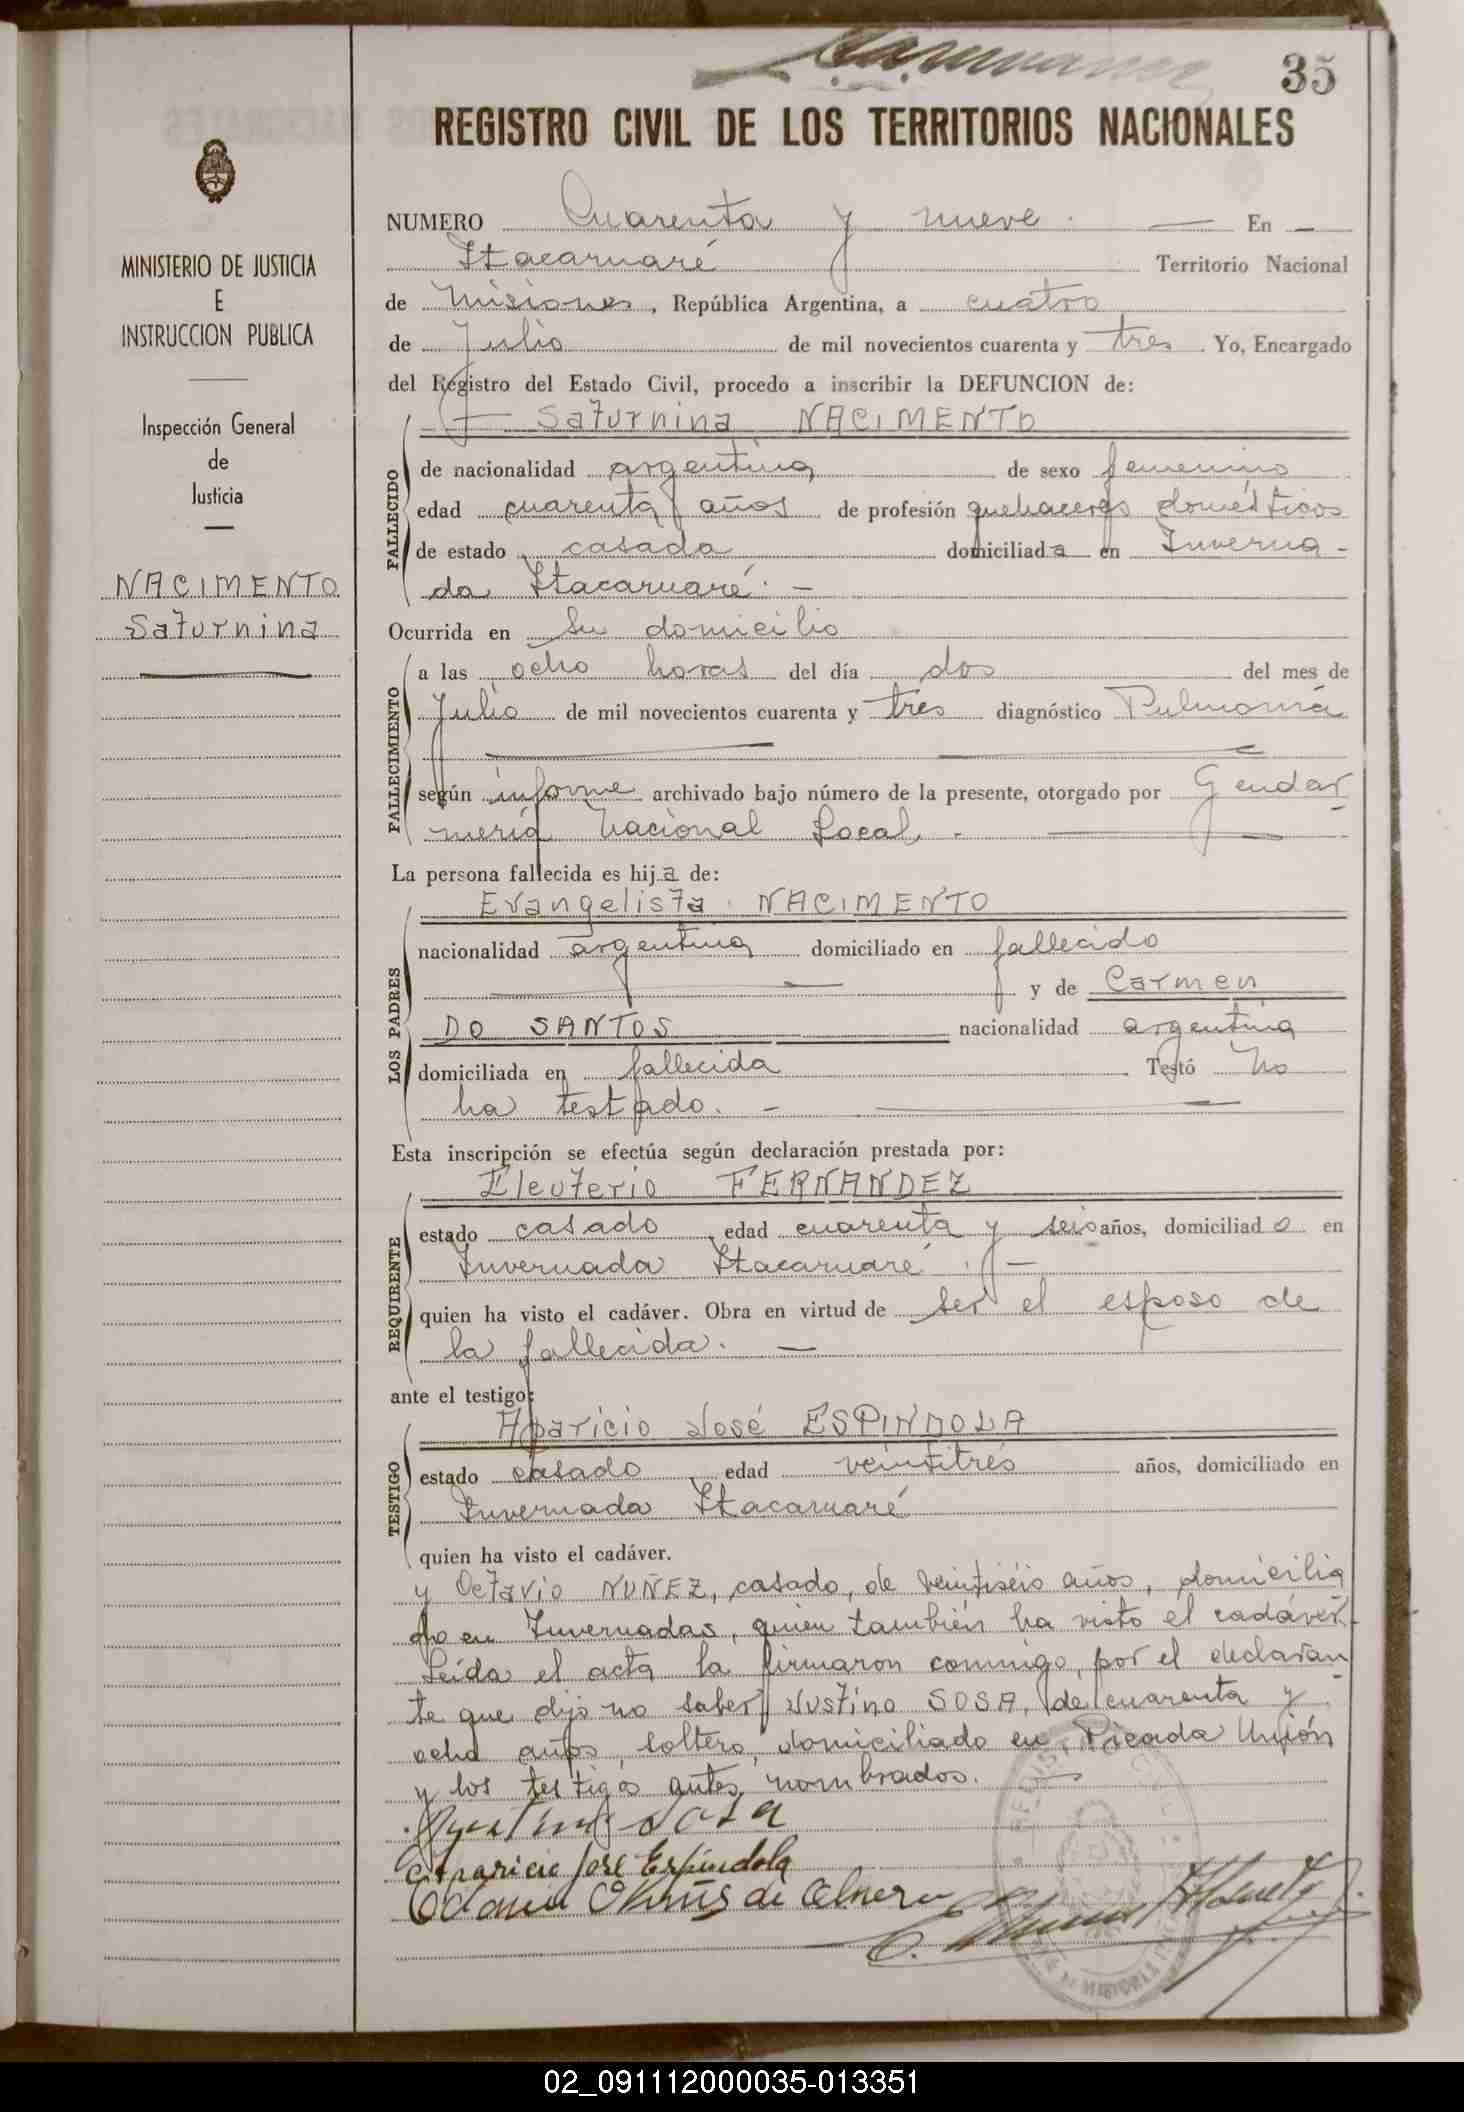 35
REGISTRO CIVIL DE LOS TERRITORIOS NACIONALES
MINISTERIO DE JUSTICIA
E
INSTRUCCION PUBLICA
Inspección General
de
Justicia
NACIMENTO
Saturnina
NUMERO Cuarenta y nueve. En
Itacaruaré Territorio Nacional
de Misiones, República Argentina, a cuatro
de Julio de mil novecientos cuarenta y tres. Yo, Encargado
del Registro del Estado Civil, procedo a inscribir la DEFUNCION de:
Saturnina NACIMENTO
FALLECIDO
de nacionalidad argentina de sexo femenino
edad cuarenta años de profesión quehaceres domésticos
de estado casada domiciliada en Inverna-
da Itacaruaré. -
Ocurrida en su domicilio
FALLECIMIENTO
a las ocho horas del día dos del mes de
Julio de mil novecientos cuarenta y tres diagnóstico Pulmonía
según informe archivado bajo número de la presente, otorgado por Gendar
mería Nacional Local. -
La persona fallecida es hija de:
LOS PADRES
Evangelista NACIMENTO
nacionalidad argentina domiciliado en fallecido
y de Carmen
DO SANTOS nacionalidad argentina
domiciliada en fallecida Testó No
ha testado. -
Esta inscripción se efectúa según declaración prestada por:
REQUIRENTE
Eleuterio FERNANDEZ
estado casado edad cuarenta y seis años, domiciliado en
Invernada Itacaruaré. -
quien ha visto el cadáver. Obra en virtud de ser el esposo de
la fallecida. -
ante el testigo:
TESTIGO
Aparicio José ESPINDOLA
estado casado edad veintitrés años, domiciliado en
Invernada Itacaruaré
quien ha visto el cadáver.
y Octavio NUÑEZ, casado, de veintiséis años, domicilia
do en Invernadas, quien también ha visto el cadáver.
Leída el acta la firmaron conmigo, por el declaran
te que dijo no saber Justino SOSA, de cuarenta y
ocho años, soltero, domiciliado en Picada Unión
y los testigos antes nombrados.
Justino Sosa
Aparicio José Espindola
02_091112000035-013351